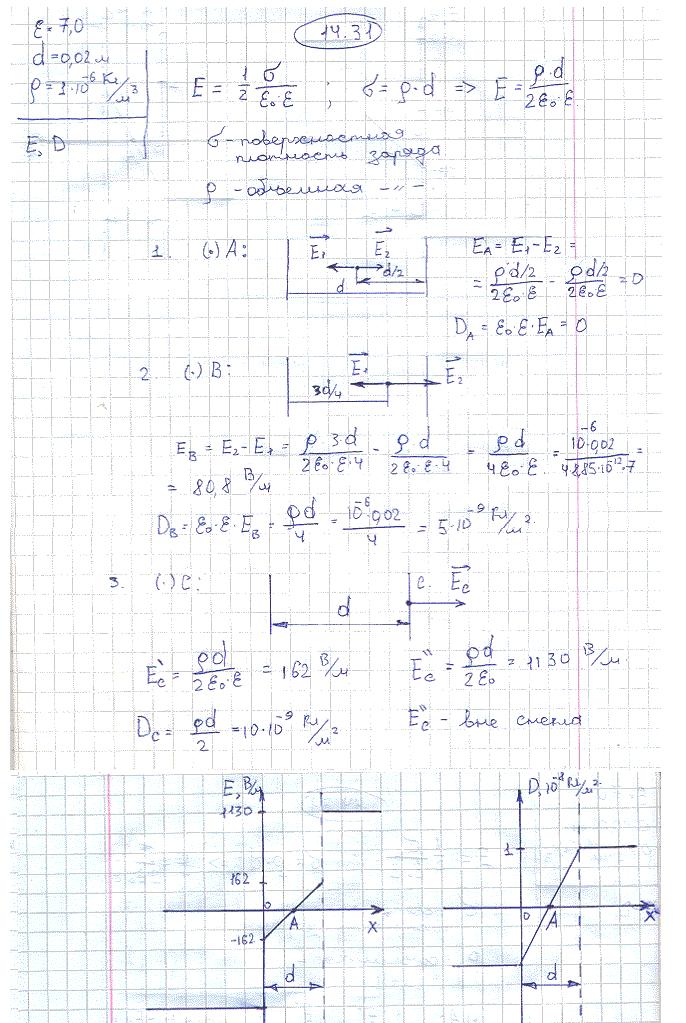 14.31
ε = 7,0
d = 0,02 м
ρ = 1·10⁻⁶ Кл/м³
E, D
E = 1/2 σ/(ε₀·ε) ; σ = ρ·d => E = ρ·d/(2ε₀·ε)
σ - поверхностная
плотность заряда
ρ - объемная -〃-
1. (·) A: E₁ E₂ d/2 d
E_A = E₁ - E₂ =
= ρ·d/2/(2ε₀·ε) - ρd/2/(2ε₀ε) = 0
D_A = ε₀·ε·E_A = 0
2. (·) B: E₁ E₂ 3d/4
E_B = E₂ - E₁ = ρ·3·d/(2ε₀·ε·4) - ρd/(2ε₀·ε·4) = ρd/(4ε₀·ε) = 10⁻⁶·0,02/(4·8,85·10⁻¹²·7) =
= 80,8 В/м
D_B = ε₀·ε·E_B = ρd/4 = 10⁻⁶·0,02/4 = 5·10⁻⁹ Кл/м²
3. (·) C: d C. E_C
E_C' = ρd/(2ε₀·ε) = 162 В/м E_C'' = ρd/(2ε₀) = 1130 В/м
D_C = ρd/2 = 10·10⁻⁹ Кл/м² E_C'' - вне стекла
E, В/м D, 10⁻⁸ Кл/м²
1130
1
162
0 A X 0 A X
-162
d d